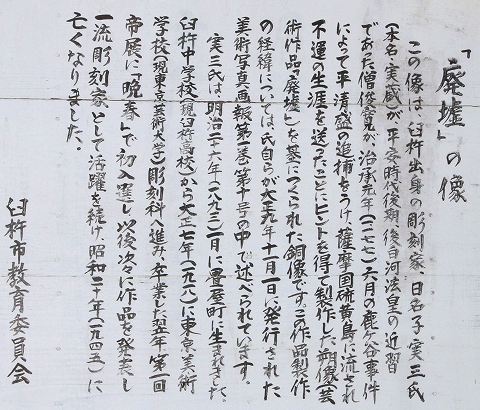 「廃墟」の像
この像は、臼杵出身の彫刻家、日名子実三氏
(本名・実蔵)が、平安時代後期後白河法皇の近習
であった僧俊寛が、治承元年(一一七七)六月の鹿ヶ谷事件
によって平清盛の追捕をうけ、薩摩国硫黄島に流され
不運の生涯を送ったことにヒントを得て製作した塑像(芸
術作品「廃墟」)を基につくられた銅像です。この作品製作
の経緯については、氏自らが大正九年十一月一日に発行された
美術写真画報第一巻第十号の中で述べられています。
実三氏は、明治二十六年(一八九三)一月に畳屋町に生まれました。
臼杵中学校(現臼杵高校)から大正七年(一九一八)に東京美術
学校(現東京芸術大学)彫刻科へ進み、卒業した翌年、第一回
帝展に「晩春」で初入選し、以後次々に作品を発表し
一流彫刻家として活躍を続け、昭和二十年(一九四五)に
亡くなりました。
臼杵市教育委員会